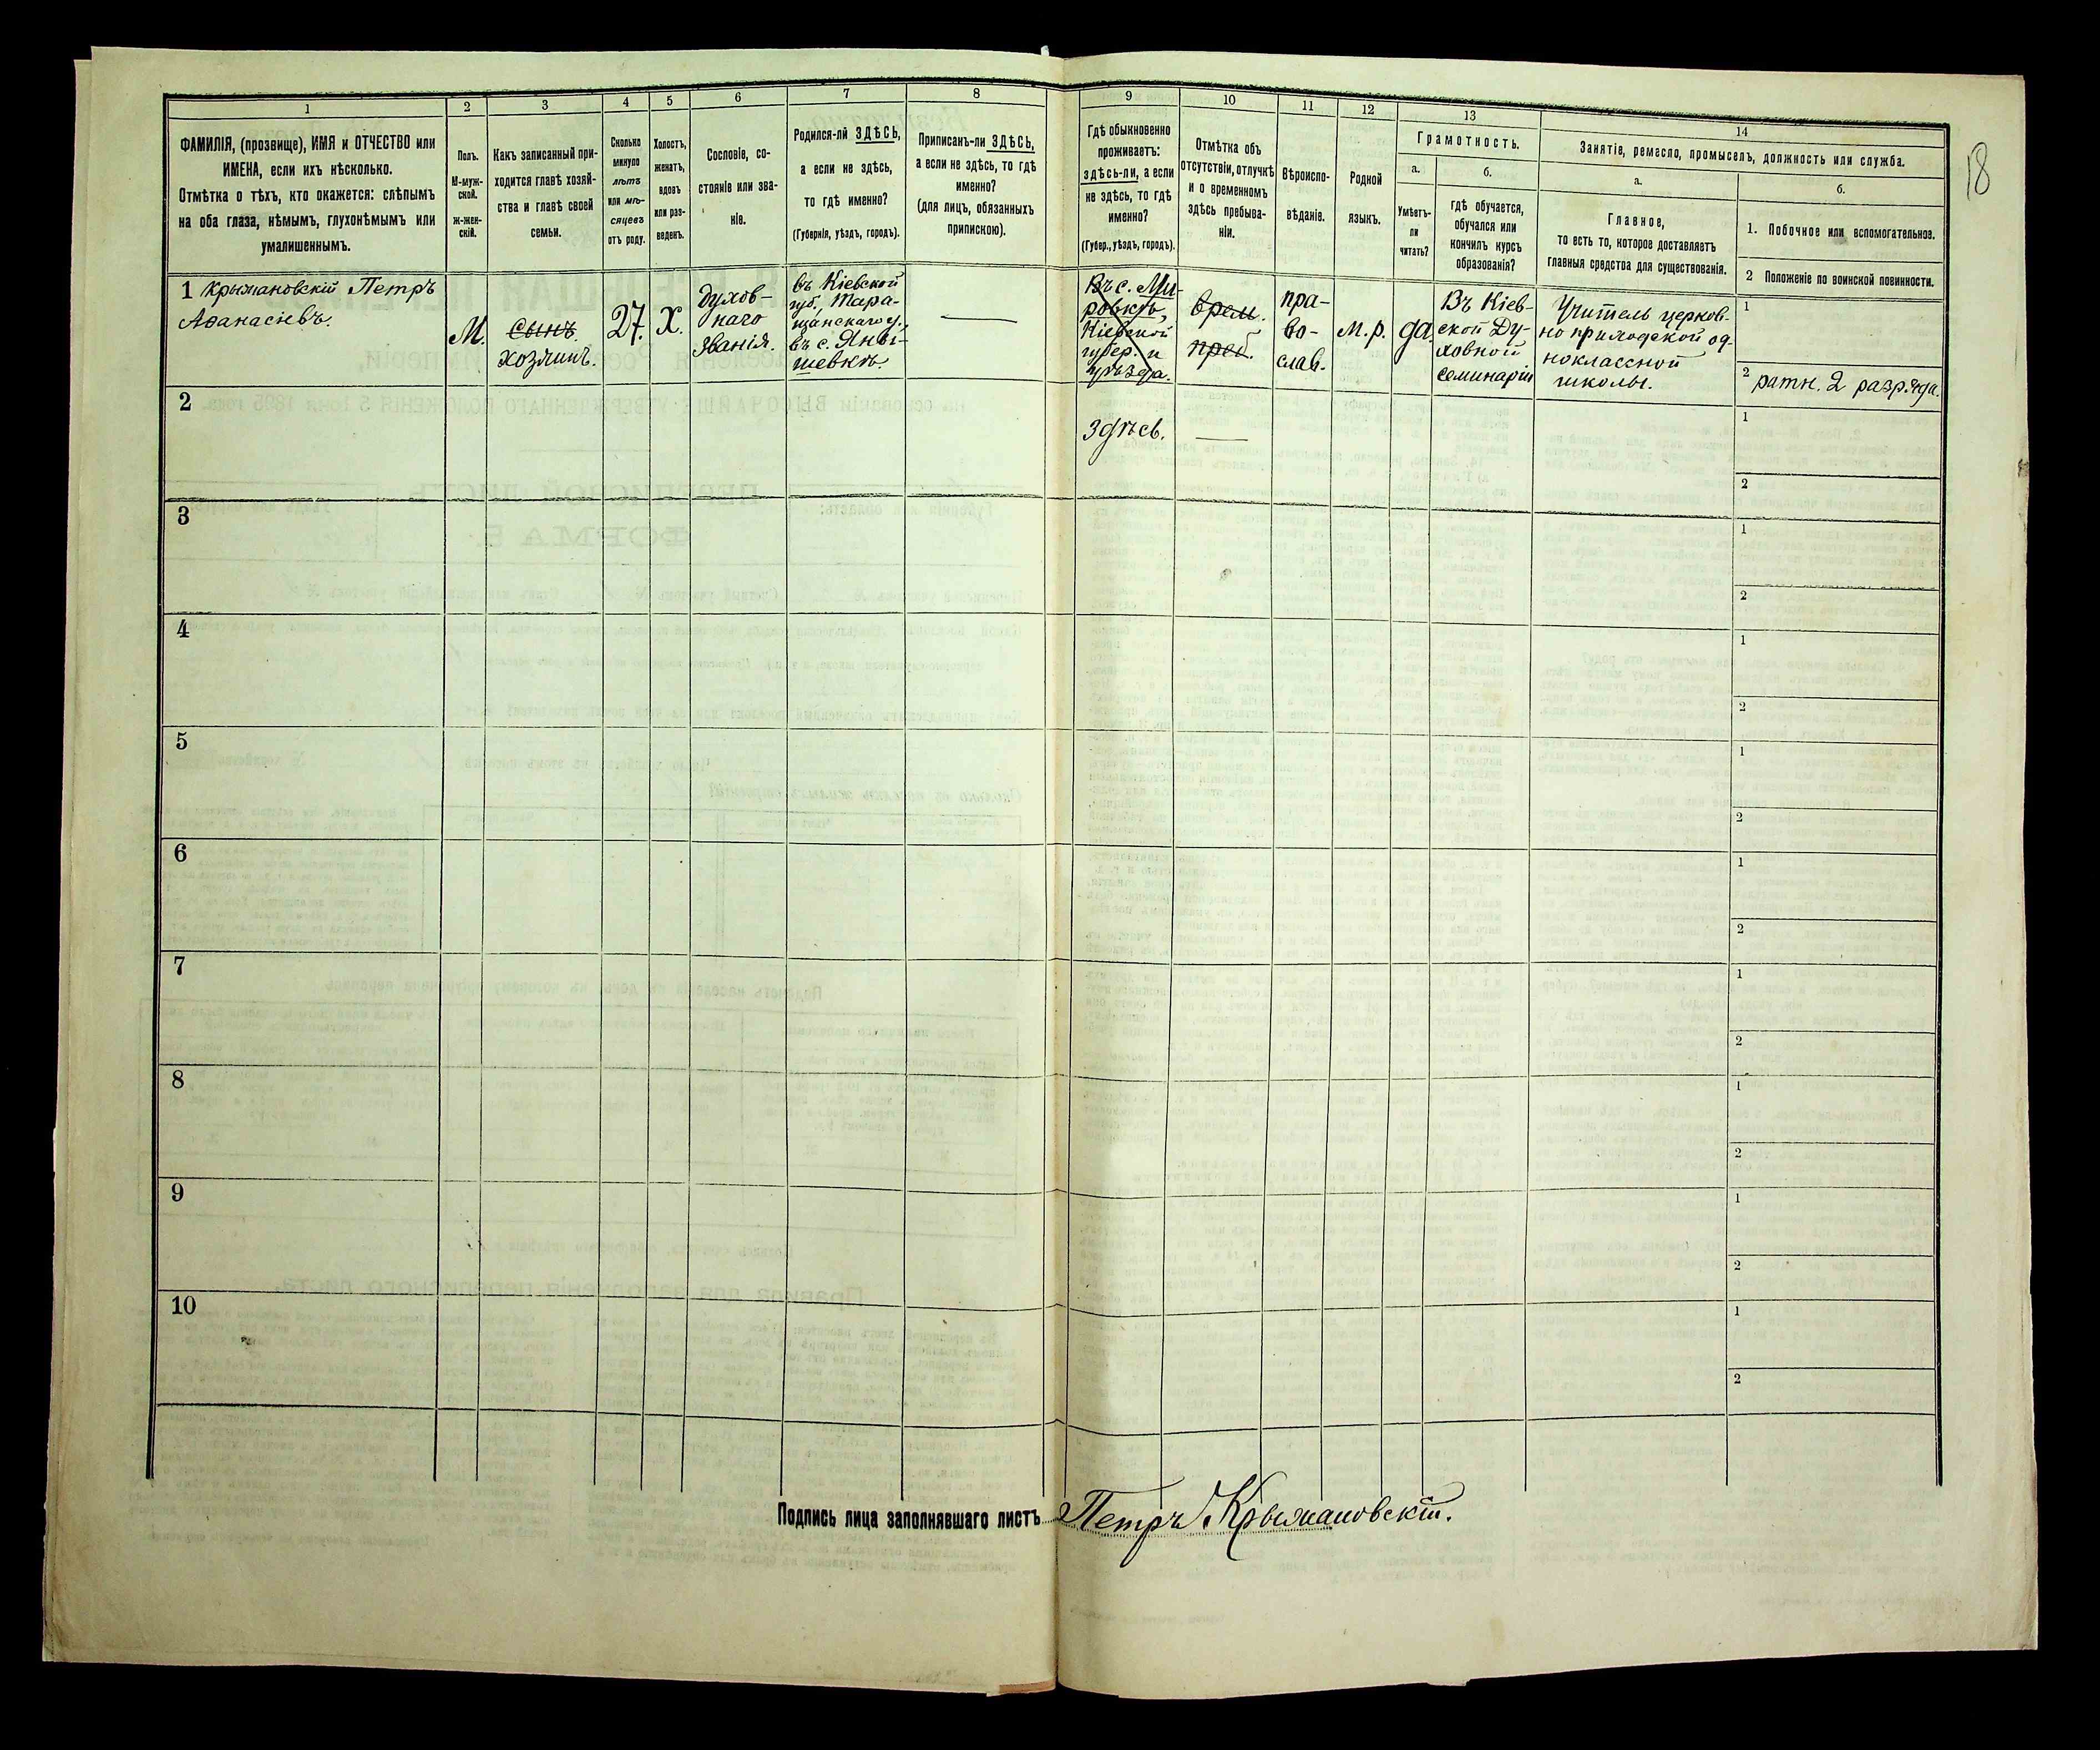 18
1
2
3
4
5
6
7
8
9
10
11
12
13
14
ФАМИЛІЯ, (прозвище), ИМЯ и ОТЧЕСТВО или
ИМЕНА, если ихъ нѣсколько.
Отмѣтка о тѣхъ, кто окажется: слѣпымъ
на оба глаза, нѣмымъ, глухонѣмымъ или
умалишеннымъ.
Полъ.
М-муж-
ской.
ж-жен-
скій.
Какъ записанный при-
ходится главѣ хозяй-
ства и главѣ своей
семьи.
Сколько
минуло
лѣтъ
или мѣ-
сяцевъ
отъ роду.
Холостъ,
женатъ,
вдовъ
или раз-
веденъ.
Сословіе, со-
стояніе или зва-
ніе.
Родился-ли ЗДѢСЬ,
а если не здѣсь,
то гдѣ именно?
(Губернія, уѣздъ, городъ).
Приписанъ-ли ЗДѢСЬ,
а если не здѣсь, то гдѣ
именно?
(для лицъ, обязанныхъ
припискою).
Гдѣ обыкновенно
проживаетъ:
здѣсь-ли, а если
не здѣсь, то гдѣ
именно?
(Губер., уѣздъ, городъ).
Отмѣтка объ
отсутствіи, отлучкѣ
и о временномъ
здѣсь пребыва-
ніи.
Вѣроиспо-
вѣданіе.
Родной
языкъ.
Грамотность.
а.
Умѣетъ-
ли
читать?
б.
гдѣ обучается,
обучался или
кончилъ курсъ
образованія?
Занятіе, ремесло, промыселъ, должность или служба.
а.
Главное,
то есть то, которое доставляетъ
главныя средства для существованія.
б.
1. Побочное или вспомогательное.
2 Положеніе по воинской повинности.
1 Крыжановскій Петръ
Аѳанасіевъ.
М.
сынъ.
хозяинъ.
27.
Х.
Духов-
наго
званія.
въ Кіевской
губ., Тара-
щанскаго у.,
въ с. Яны-
шевкѣ.
—
Въ с. Ми-
ровкѣ,
Кіевской
губер. и
уѣзда.
Здѣсь.
врем.
преб.
—
пра-
во-
слав.
м.р.
да.
Въ Кіев-
ской Ду-
ховной
семинаріи
Учитель церков-
но приходской од-
ноклассной
школы.
1
2 ратн. 2 разряда.
2
1
2
3
1
2
4
1
2
5
1
2
6
1
2
7
1
2
8
1
2
9
1
2
10
1
2
Подпись лица заполнявшаго листъ Петръ Крыжановскій.